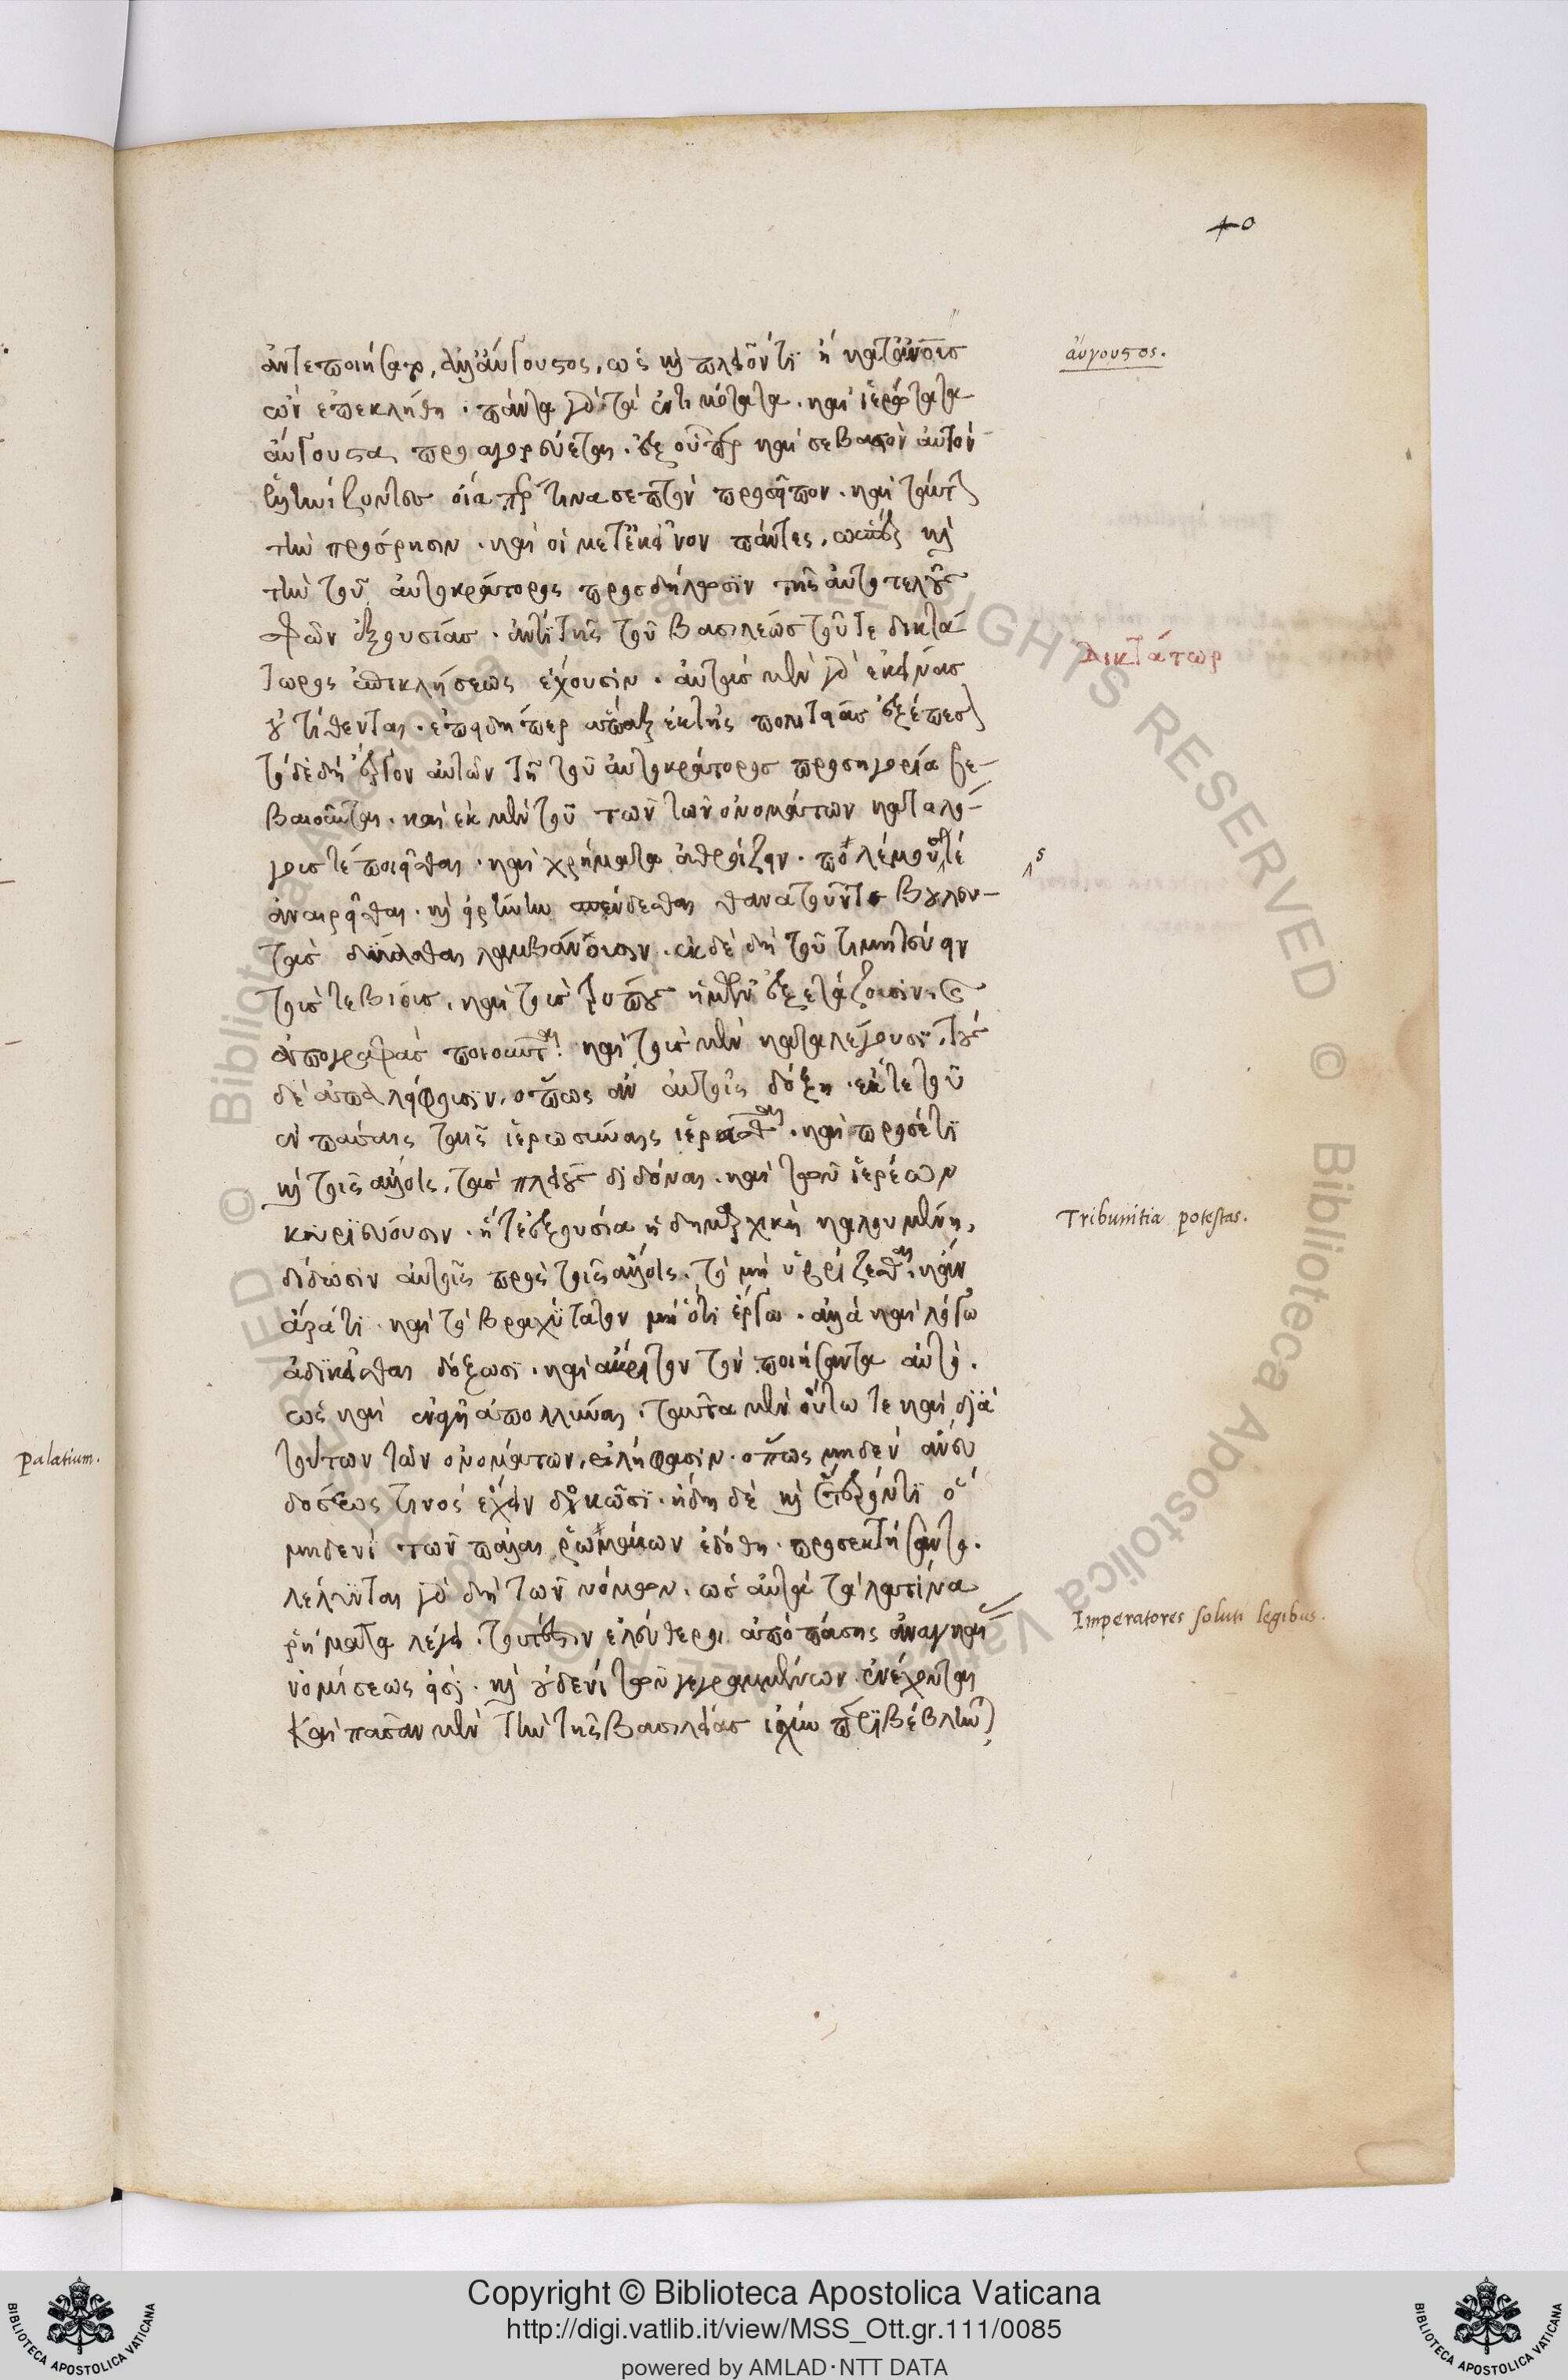 40
ἀντεποιήσατο, ἀλλ' ἀύγουστος, ὡς καὶ πλεῖόν τι ἢ κατ' ἀνθρώπους
ὢν ἐπεκλήθη. πάντα γὰρ τὰ ἐντιμότατα. καὶ ἱερώτατα
ἀύγουστα προσαγορεύεται. ἐξ οὗπερ καὶ σεβαστὸν αὐτὸν
οἷά περ τινα σεπτὸν πρόσωπον. καὶ ταύτ
τὴν πρόσρησιν. καὶ οἱ μετ' ἐκεῖνον πάντες, ὥσπερ καὶ
τὴν τοῦ αὐτοκράτορος προσδήλωσιν τῆς αὐτοτελοῦς
σφῶν ἐξουσίας. ἀντὶ τῆς τοῦ βασιλέως τοῦ τε δικτά
τωρος ἐπικλήσεως ἔχουσιν. αὐτὰς μὲν γὰρ ἐκείνας
οὐ τίθενται. ἐπειδήπερ ἅπαξ ἐκ τῆς πολιτείας ἐξέπεσον
τὸ δὲ δὴ ἔργον αὐτῶν τῇ τοῦ αὐτοκράτορος προσηγορίᾳ βε-
βαιοῦνται. καὶ ἐκ μὲν τοῦ των τῶν ὀνομάτων καταλό-
γους τε ποιεῖσθαι. καὶ χρήματα ἀθροίζειν. πολέμους τέ
ἀναιρεῖσθαι. καὶ εἰρήνην σπένδεσθαι
λαμβάνουσιν. ἐκ δὲ δὴ τοῦ τιμητεύειν
τούς τε βίους, καὶ τοὺς τρόπους ἡμῶν ἐξετάζουσιν, καὶ
ἀπογραφὰς ποιοῦνται. καὶ τοὺς μὲν καταλέγουσι, τοὺς
δὲ ἀπαλείφουσιν, ὅπως ἂν αὐτοῖς δόξῃ. ἔκ τε τοῦ
ἐν πάσαις ταῖς ἱερωσύναις ἱερᾶσθαι. καὶ προσέτι
καὶ τοῖς ἄλλοις, τὰς πλείους διδόναι. καὶ τῶν ἱερέων
κυριεύουσιν. ἥ τε ἐξουσία ἡ δημαρχικὴ καλουμένη,
δίδωσιν αὐτοῖς πρὸς τοῖς ἄλλοις. τὸ μὴ ὑβρίζεσθαι. κἂν
ἄρα τι. καὶ τὸ βραχύτατον μὴ ὅτι ἔργῳ. ἀλλὰ καὶ λόγῳ
ἀδικεῖσθαι δόξωσι. καὶ ἄκριτον τὸν ποιήσαντα αὐτό.
ὡς καὶ ἐναγῆ ἀπολλύναι. ταῦτα μὲν οὕτω τε καὶ διὰ
τούτων τῶν ὀνομάτων, εἰλήφασιν. ὅπως μηδὲν ἄνευ
δόσεώς τινος ἔχειν δοκῶσι. ἤδη δὲ καὶ ἕτερόν τι ὃ
μηδενὶ τῶν πάλαι ῥωμαίων ἐδόθη. προσεκτήσαντο.
λέλυνται γὰρ δὴ τῶν νόμων. ὡς αὐτὰ τὰ λατίνα
ῥήματα λέγει. τουτέστιν ἐλεύθεροι ἀπὸ πάσης ἀναγκαί
νομίσεώς εἰσι. καὶ οὐδενὶ τῶν γεγραμμένων ἐνέχονται
καὶ πᾶσαν μὲν τὴν τῆς βασιλείας ἰσχὺν περιβέβληνται
ἀύγουστος.
Δικτάτωρ
ς
Tribunitia potestas.
Palatium.
Imperatores soluti legibus.
Copyright © Biblioteca Apostolica Vaticana
http://digi.vatlib.it/view/MSS_Ott.gr.111/0085
powered by AMLAD·NTT DATA
BIBLIOTECA APOSTOLICA VATICANA
BIBLIOTECA APOSTOLICA VATICANA